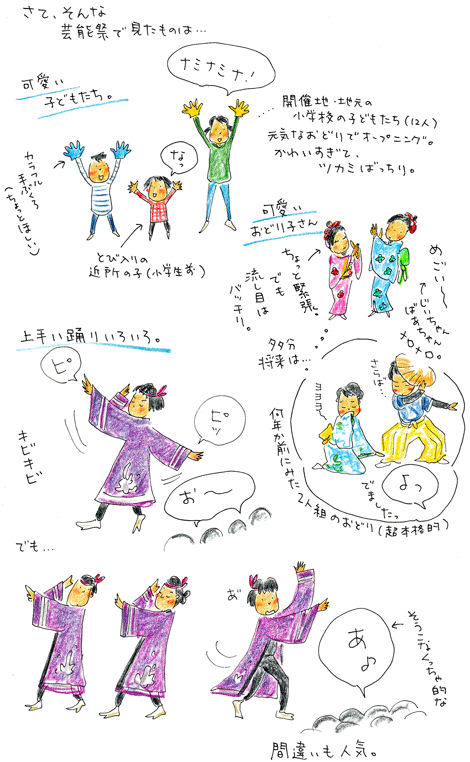 さて、そんな
芸能祭で見たものは…
可愛い
子どもたち。
ナミナミナ!
開催地・地元の
小学校の子どもたち(12人)
元気なおどりでオープニング。
かわいすぎて、
ツカミばっちり。
カラフル
手ぶくろ
(ちょっとほしい)
なっ
とび入りの
近所の子(小学生前)
可愛い
おどり子さん
ちょっと緊張。
でも
流し目は
バッチリ。
めごい〜
じいちゃん
ばあちゃん
メロメロ。
多分
将来は…
さらば…
ヨヨヨ
でましたっ
よっ
何年か前にみた
2人組のおどり(超本格的)
上手い踊りいろいろ。
ピッ
ピッ
キビ
キビ
お〜
でも…
あ
あ♪
そうこなくっちゃ的な
間違いも人気。